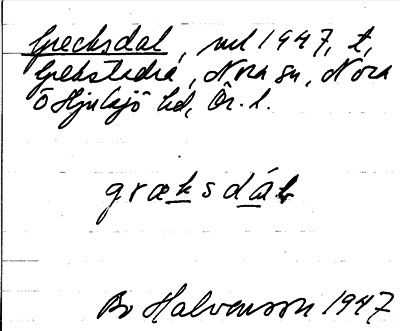 Grecksdal, vid 1947, t,
Grekstadra, Nora sn, Nora
o Hjulsjö hd, Ör. l.
græksdál
Bo Halvarsson 1947